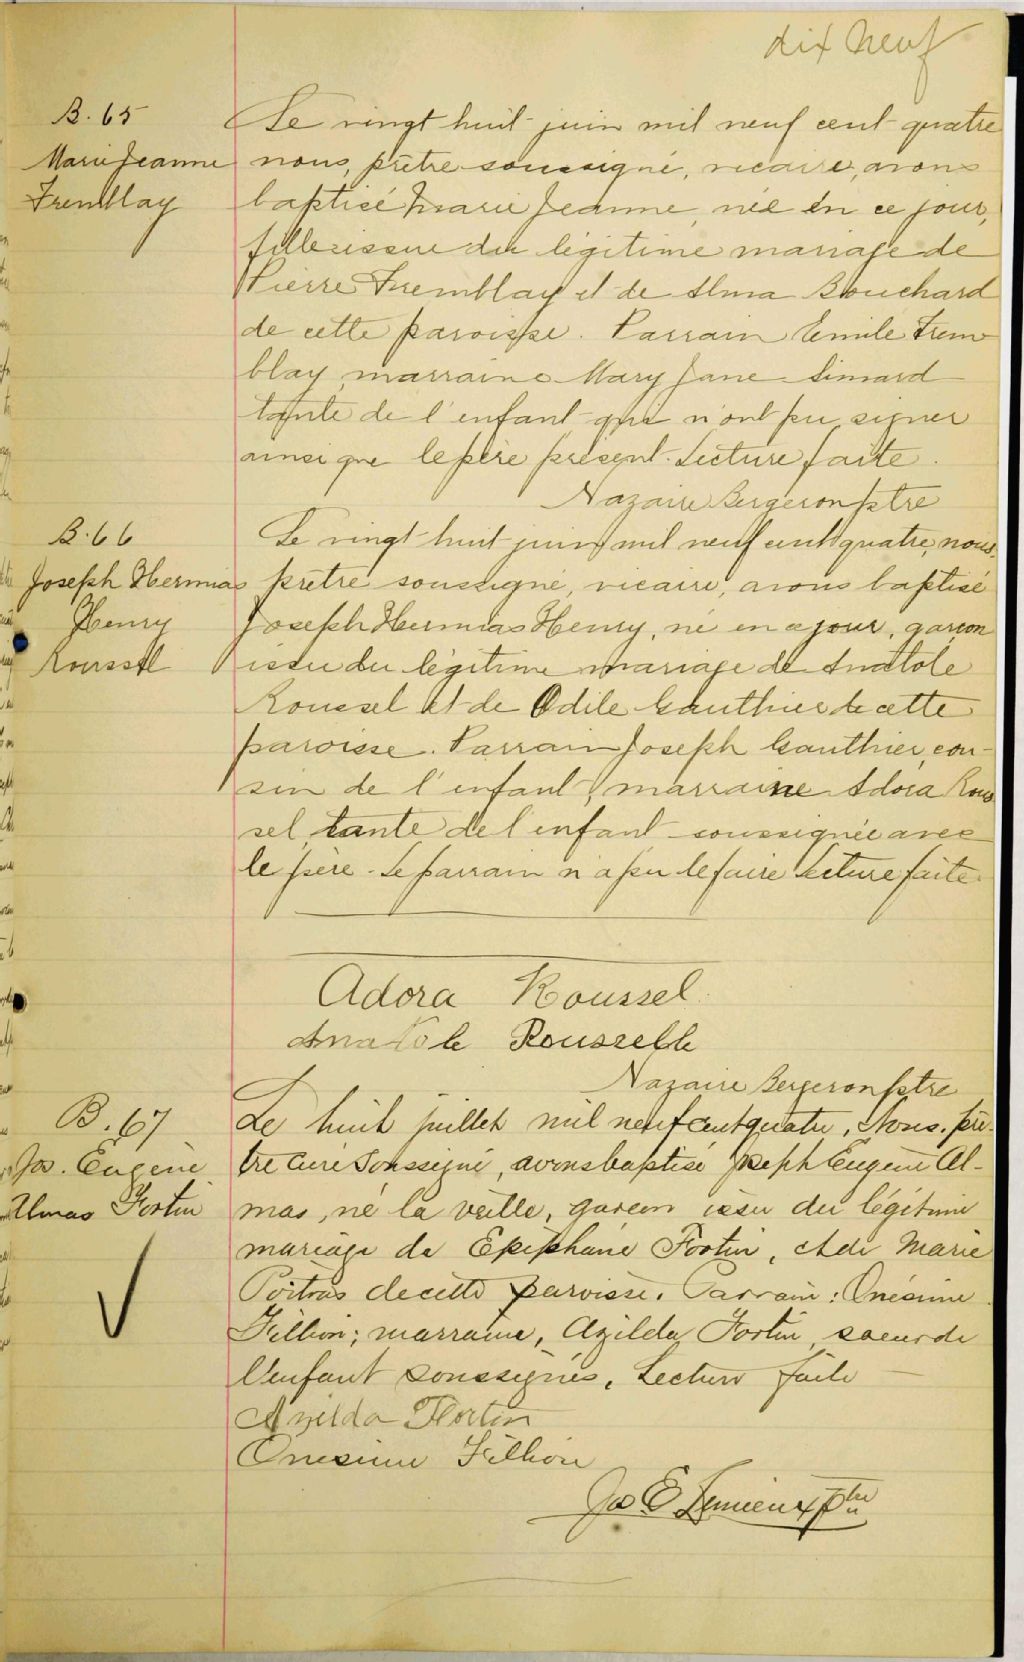 dix neuf
B. 65
Marie Jeanne
Tremblay
Le vingt huit juin mil neuf cent quatre
nous, prêtre soussigné, vicaire, avons
baptisé Marie Jeanne, née en ce jour,
fille issue du légitime mariage de
Pierre Tremblay et de Alma Bouchard
de cette paroisse. Parrain Emile Trem
blay, marraine Mary Jane Simard
tante de l'enfant qui n'ont pu signer
ainsi que le père présent. Lecture faite.
Nazaire Bergeron ptre
B. 66
Joseph Hermias
Henry
Roussel
Le vingt huit juin mil neuf cent quatre, nous,
prêtre soussigné, vicaire, avons baptisé
Joseph Hermias Henry, né en ce jour, garçon
issu du légitime mariage de Anatole
Roussel et de Odile Gauthier de cette
paroisse. Parrain Joseph Gauthier, cou-
sin de l'enfant, marraine Adora Rous
sel, tante de l'enfant soussignée avec
le père. Le parrain n'a pu le faire Lecture faite.
Adora Roussel
Anatole Rousselle
Nazaire Bergeron ptre
B. 67
Jos. Eugène
Almas Fortin
Le huit juillet mil neuf cent quatre, Nous, prê-
tre curé soussigné, avons baptisé Joseph Eugène Al-
mas, né la veille, garçon issu du légitime
mariage de Epiphane Fortin, et de Marie
Poitras de cette paroisse. Parrain: Onésime
Fillion; marraine, Azilda Fortin soeur de
l'enfant soussignés. Lecture faite
Azilda Fortin
Onesime Fillion
Jos E Lemieux Ptre